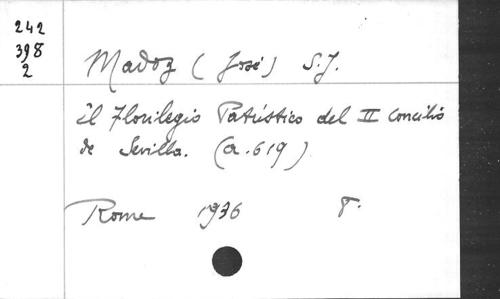 242
398
2
Madoz (José) S.J.
El Florilegio Patrístico del II Concilio
de Sevilla. (a. 619)
Rome 1936 8°.